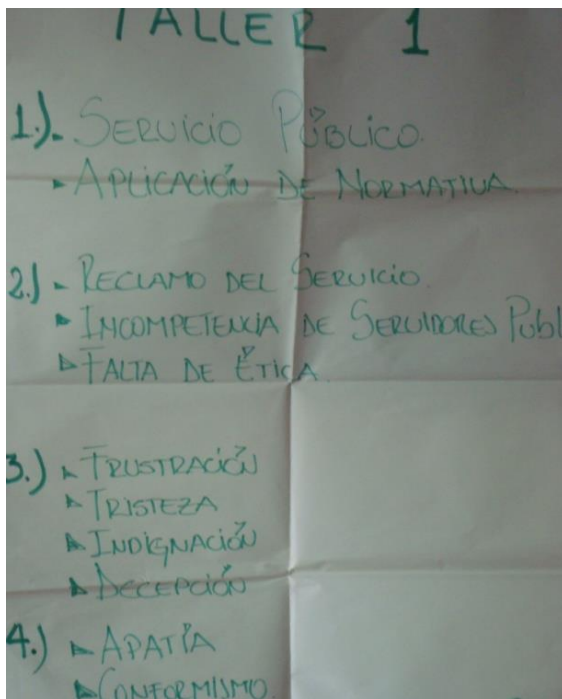 TALLER 1
1.)- SERVICIO PÚBLICO.
▸ APLICACIÓN DE NORMATIVA.
2.) - RECLAMO DEL SERVICIO.
▸ INCOMPETENCIA DE SERVIDORES PUBL
▸ FALTA DE ÉTICA.
3.) ▸ FRUSTRACIÓN
▸ TRISTEZA
▸ INDIGNACIÓN
▸ DECEPCIÓN
4.) ▸ APATÍA
▸ CONFORMISMO.